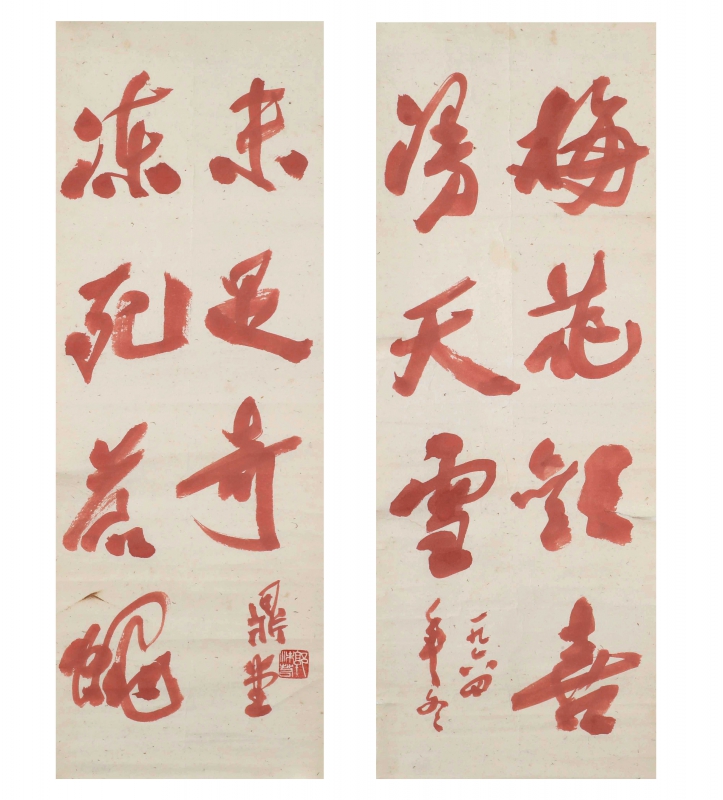 梅花歡喜
漫天雪
一九六四
年冬
凍死蒼蠅
未足奇
鼎堂
郭沫若